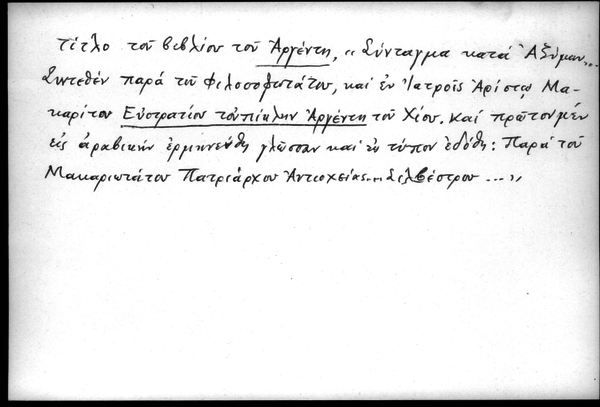 τίτλο τοῦ βιβλίου τοῦ Ἀργέντη, « Σύνταγμα κατά Ἀζύμων..
Συντεθέν παρά τοῦ Φιλοσοφωτάτου, καί ἐν Ἰατροῖς Ἀρίστῳ Μα-
καρίτου Εὐστρατίου τοὐπίκλην Ἀργέντη τοῦ Χίου. καί πρῶτον μέν
εἰς ἀραβικήν ἑρμηνεύθη γλῶσσαν καί ἐν τύπον ἐδόθη: Παρά τοῦ
Μακαριωτάτου Πατριάρχου Ἀντιοχείας... Σιλβέστρου ... »